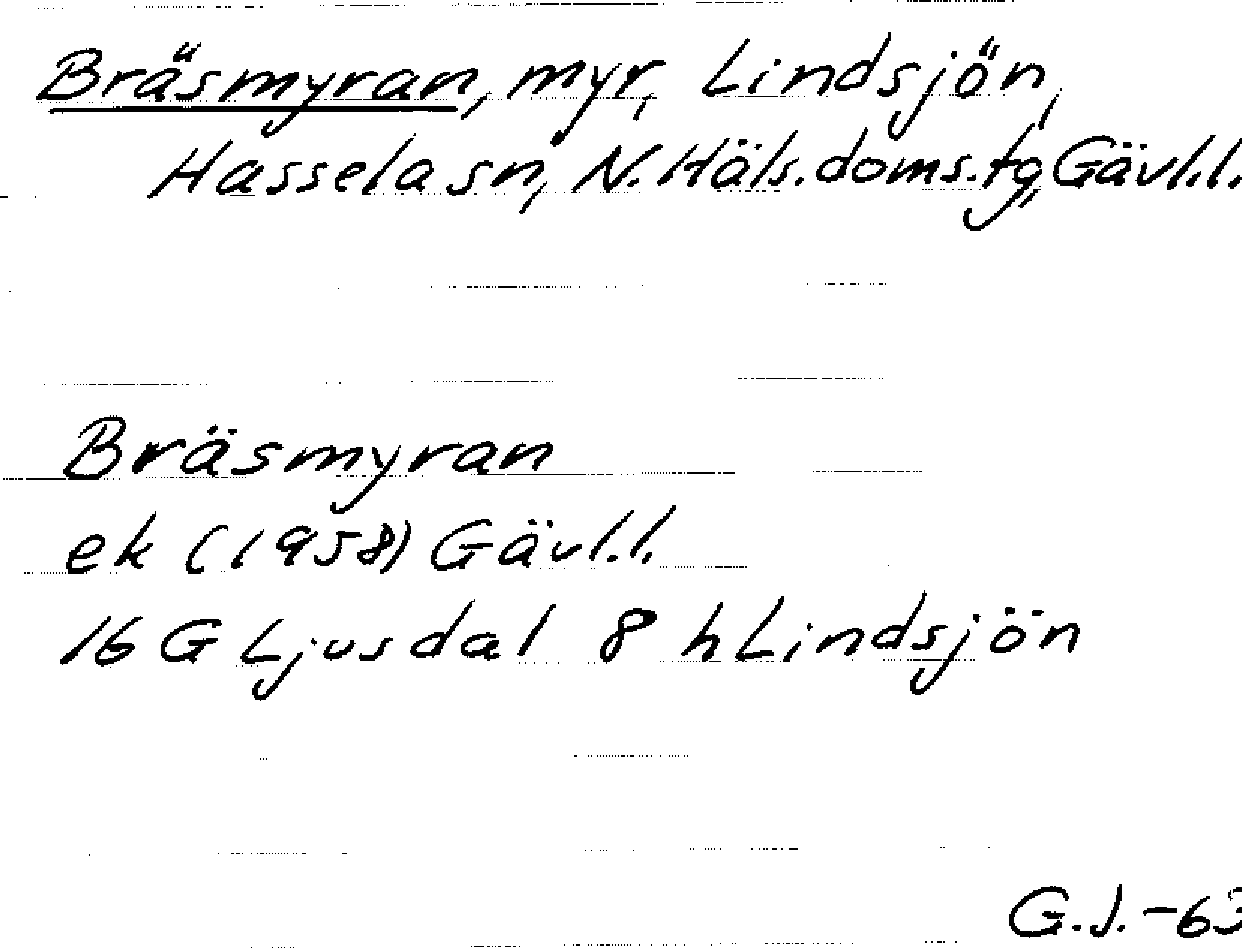 Bräsmyran, myr, Lindsjön,
Hassela sn, N. Häls. doms. tg, Gävl.l.
Bräsmyran
ek (1958) Gävl.l.
16 G Ljusdal 8 h Lindsjön
G.J. -63